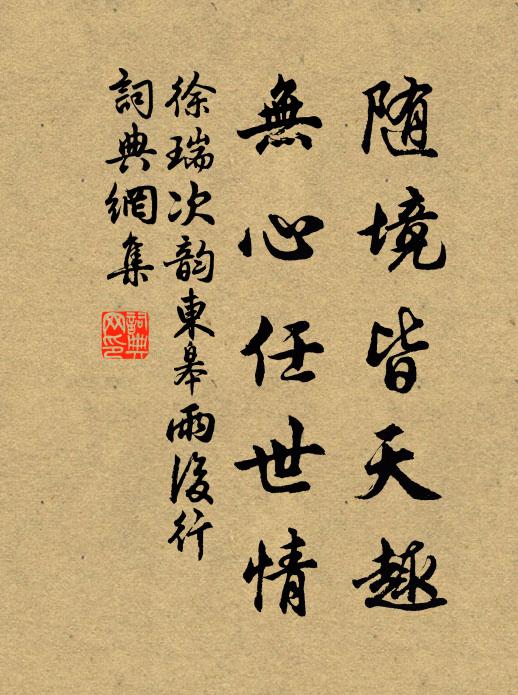 随境皆天趣
無心任世情
徐瑞次韵東皋雨後行
詞典網集
詞典
网印